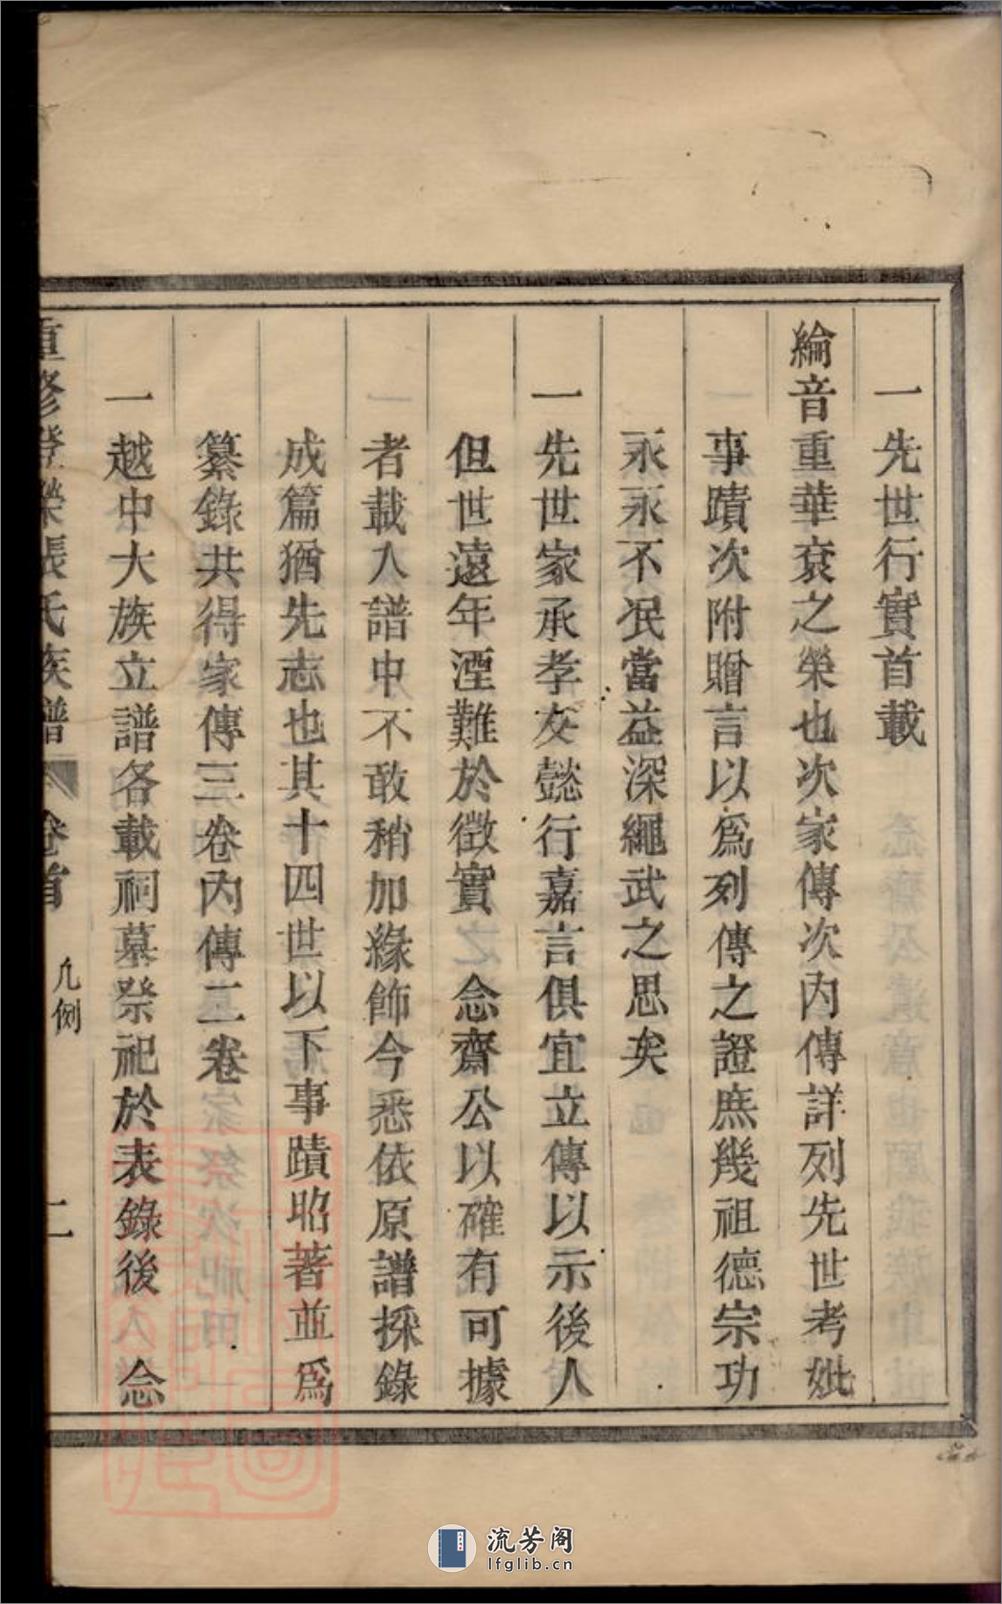 一先世行實首載
綸音重華衮之榮也次家傳次內傳詳列先世考妣
事蹟次附贈言以爲列傳之證庶幾祖德宗功
永永不泯當益深繩武之思矣
一先世家承孝友懿行嘉言俱宜立傳以示後人
但世遠年湮難於徵實 念齋公以確有可據
者載入譜中不敢稍加緣飾今悉依原譜採錄
成篇猶先志也其十四世以下事蹟昭著並爲
纂錄共得家傳三卷內傳二卷
一越中大族立譜各載祠墓祭祀於表錄後 念
重修登榮張氏族譜 卷首 凡例 二
流芳阁
lfglib.cn